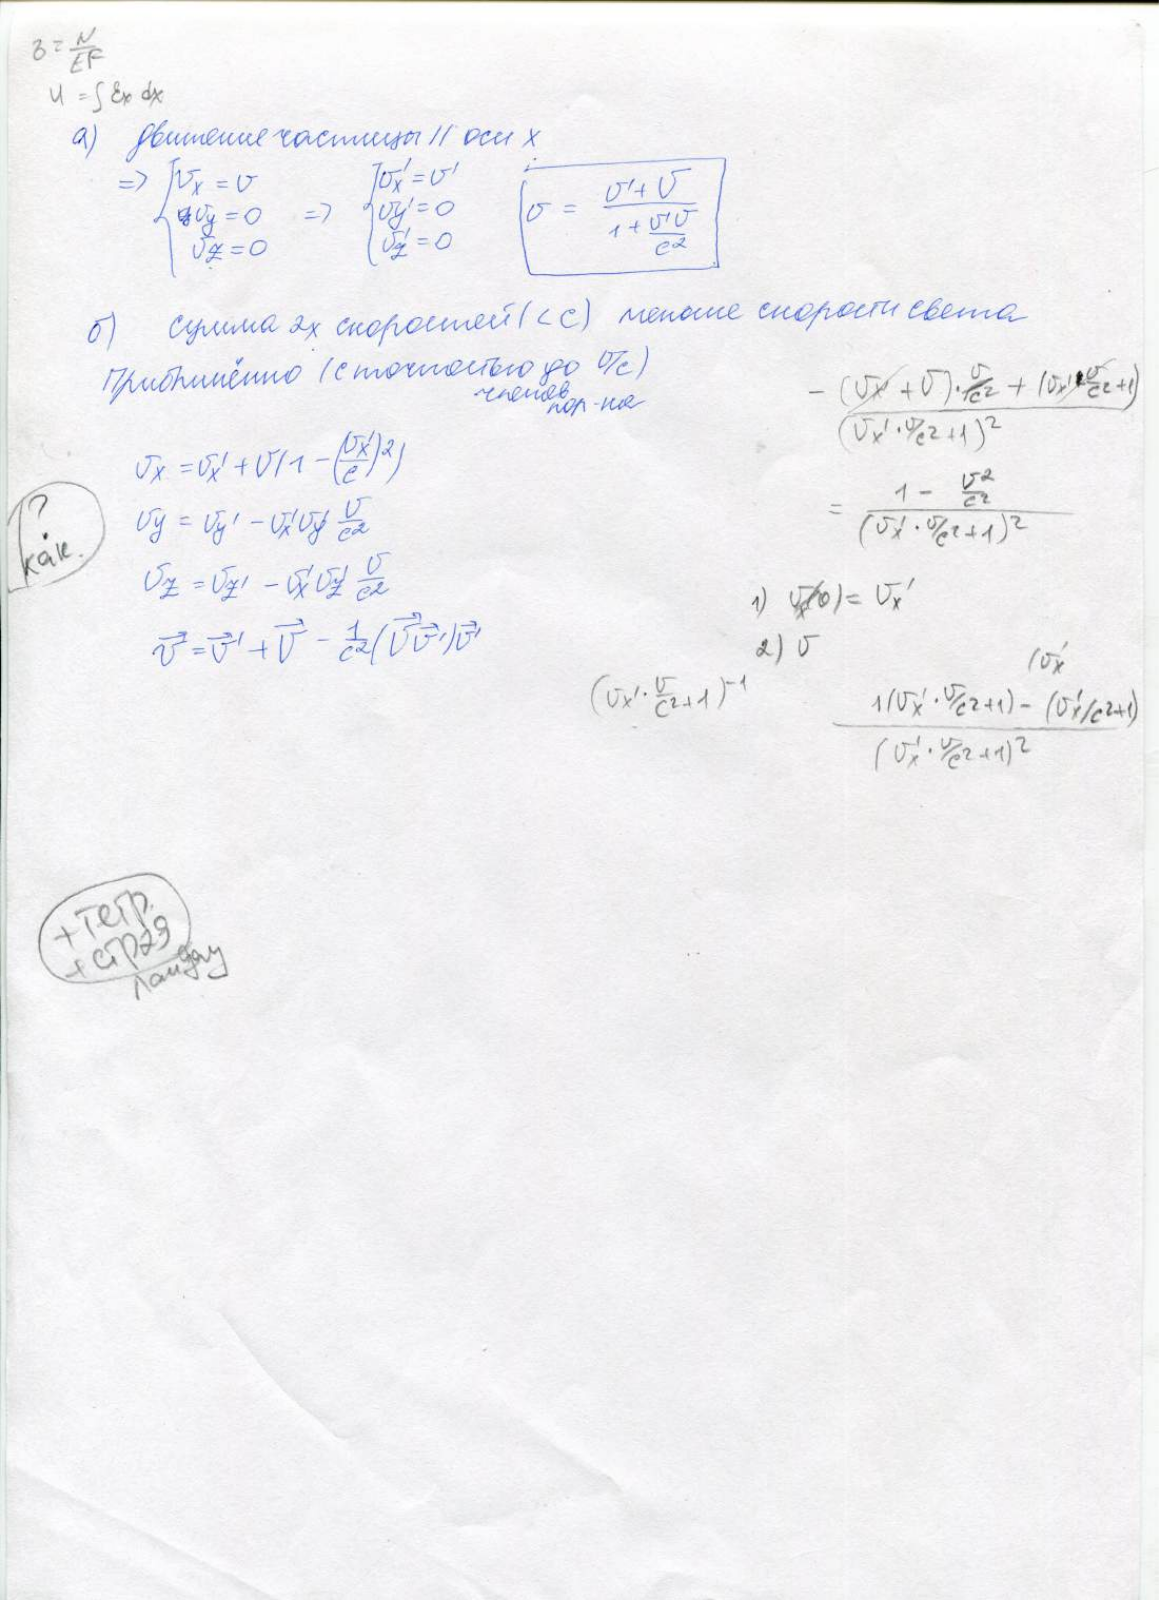 ε = N/EF
u = ∫ εx dx
а) движение частицы || оси x
=> { vx = v, vy = 0, vz = 0 => { vx' = v', vy' = 0, vz' = 0
v = (v' + V) / (1 + v'V/c²)
б) сумма 2х скоростей (< c) меньше скорости света
Приближённо (с точностью до V/c)
членов пор-ка
vx = vx' + V(1 - (vx'/c)²)
vy = vy' - vx'vy' V/c²
vz = vz' - vx'vz' V/c²
v⃗ = v⃗' + V⃗ - 1/c² (V⃗v⃗')v⃗'
? как.
- (vx' + V)·v/c² + (vx'·v/c²+1)
(vx'·v/c²+1)²
= (1 - v²/c²) / (vx'·v/c²+1)²
1) vx(0) = vx'
2) v
(vx'
(vx'·v/c²+1)⁻¹
1(vx'·v/c²+1) - (vx'/c²+1)
(vx'·v/c²+1)²
+ тетр.
+ стр 29
Ландау